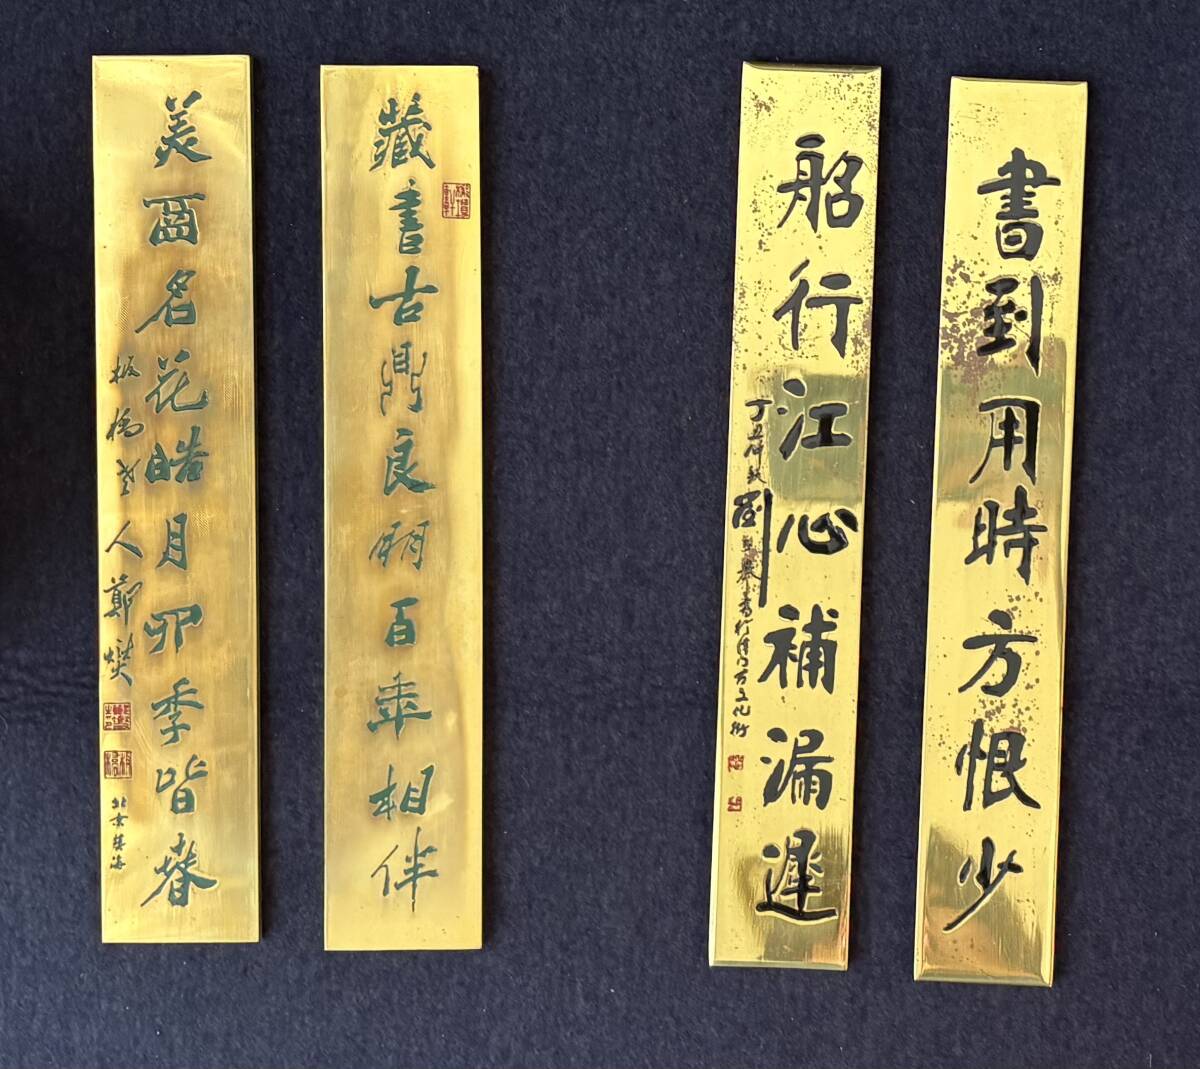 書到用時方恨少
船行江心補漏遲
丁丑仲秋劉
藏書古鼎良朋百年相伴
美画名花皓月四季皆春
板橋老人鄭燮
北京